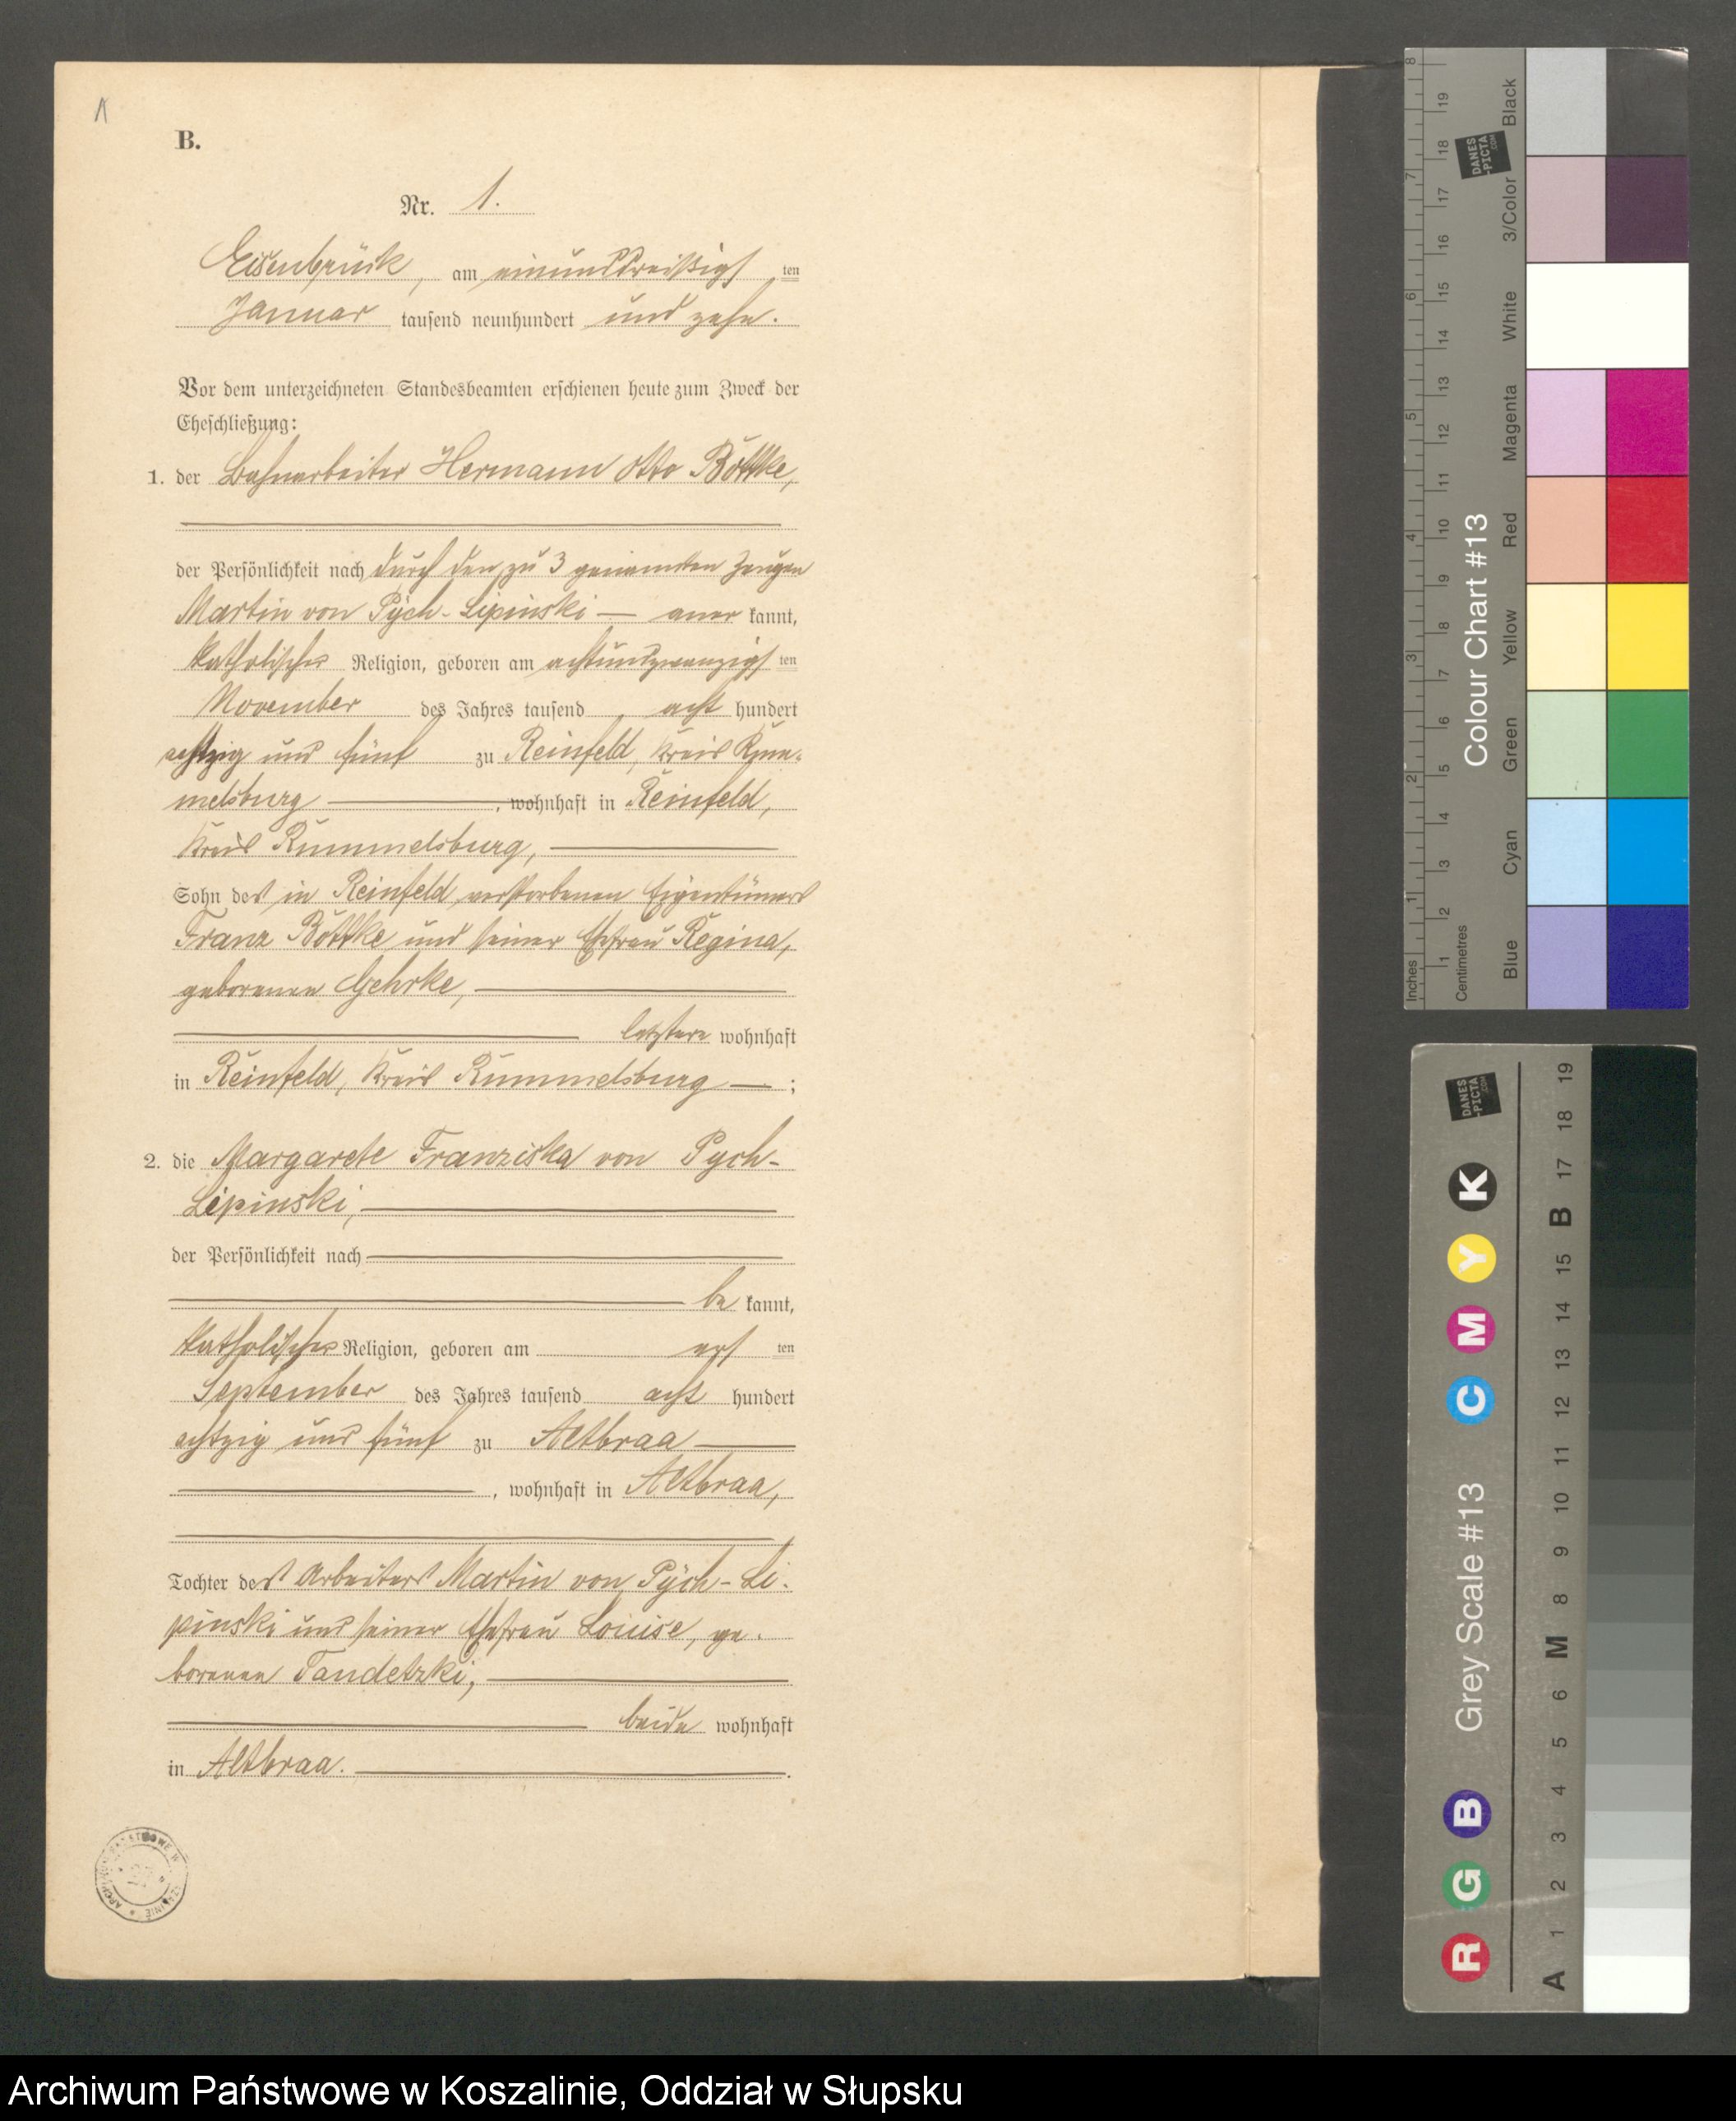 1
B.
Nr. 1.
Eisenbrück, am einunddreißigs ten
Januar tausend neunhundert und zehn.
Vor dem unterzeichneten Standesbeamten erschienen heute zum Zweck der
Eheschließung:
1. der Bahnarbeiter Hermann Otto Böttke,
der Persönlichkeit nach durch den zu 3 genannten Zeugen
Martin von Pych-Lipinski — aner kannt,
katholischer Religion, geboren am achtundzwanzigs ten
November des Jahres tausend acht hundert
achtzig und fünf zu Reinfeld, Kreis Rum-
melsburg, wohnhaft in Reinfeld,
Kreis Rummelsburg,
Sohn des in Reinfeld verstorbenen Eigentümers
Franz Böttke und seiner Ehefrau Regina,
geborenen Gehrke,
letztere wohnhaft
in Reinfeld, Kreis Rummelsburg — ;
2. die Margarete Franziska von Pych-
Lipinski,
der Persönlichkeit nach
be kannt,
katholischer Religion, geboren am ers ten
September des Jahres tausend acht hundert
achtzig und fünf zu Altbraa
, wohnhaft in Altbraa,
Tochter des Arbeiters Martin von Pych-Li-
pinski und seiner Ehefrau Louise, ge-
borenen Tandetzki,
beide wohnhaft
in Altbraa.
Inches 1 2 3 4 5 6 7 8
Centimetres 1 2 3 4 5 6 7 8 9 10 11 12 13 14 15 16 17 18 19
DANES
-PICTA
.COM
Colour Chart #13
Blue Cyan Green Yellow Red Magenta White 3/Color Black
DANES
-PICTA
.COM
Grey Scale #13
R G B C M Y K
A 1 2 3 4 5 6 M 8 9 10 11 12 13 14 15 B 17 18 19
Archiwum Państwowe w Koszalinie, Oddział w Słupsku